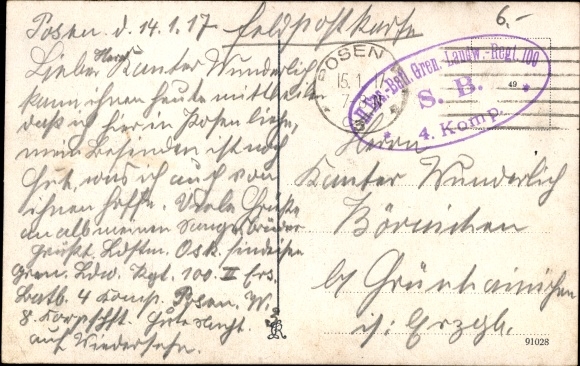 Posen d. 14.1.17 Feldpostkarte
6,-
Lieber Herr Kantor Wunderlich
kann ihnen heute mitteilen
daß ich hier in Posen liege,
mein Befinden ist noch
Gut, was ich auch von
ihnen hoffe. Viele Grüße
an alle meinen Sangesbrüder
Grüßt Ldstm. Osk.
Gren. Ldw. Rgt. 100 II Ers.
Batl. 4 Komp. Posen. W.
8. Korpschft. Gute Nacht.
auf Wiedersehn.
POSEN
15.1
II. Ers.-Batl. Gren. Landw.-Regt. 100
S. B.
4. Komp.
49
Herrn
Kantor Wunderlich
Börnichen
by Grünhainichen
i. Erzgb.
91028